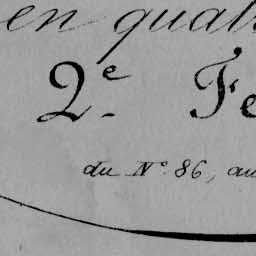 en quat
2e. Fe
du No. 86, au